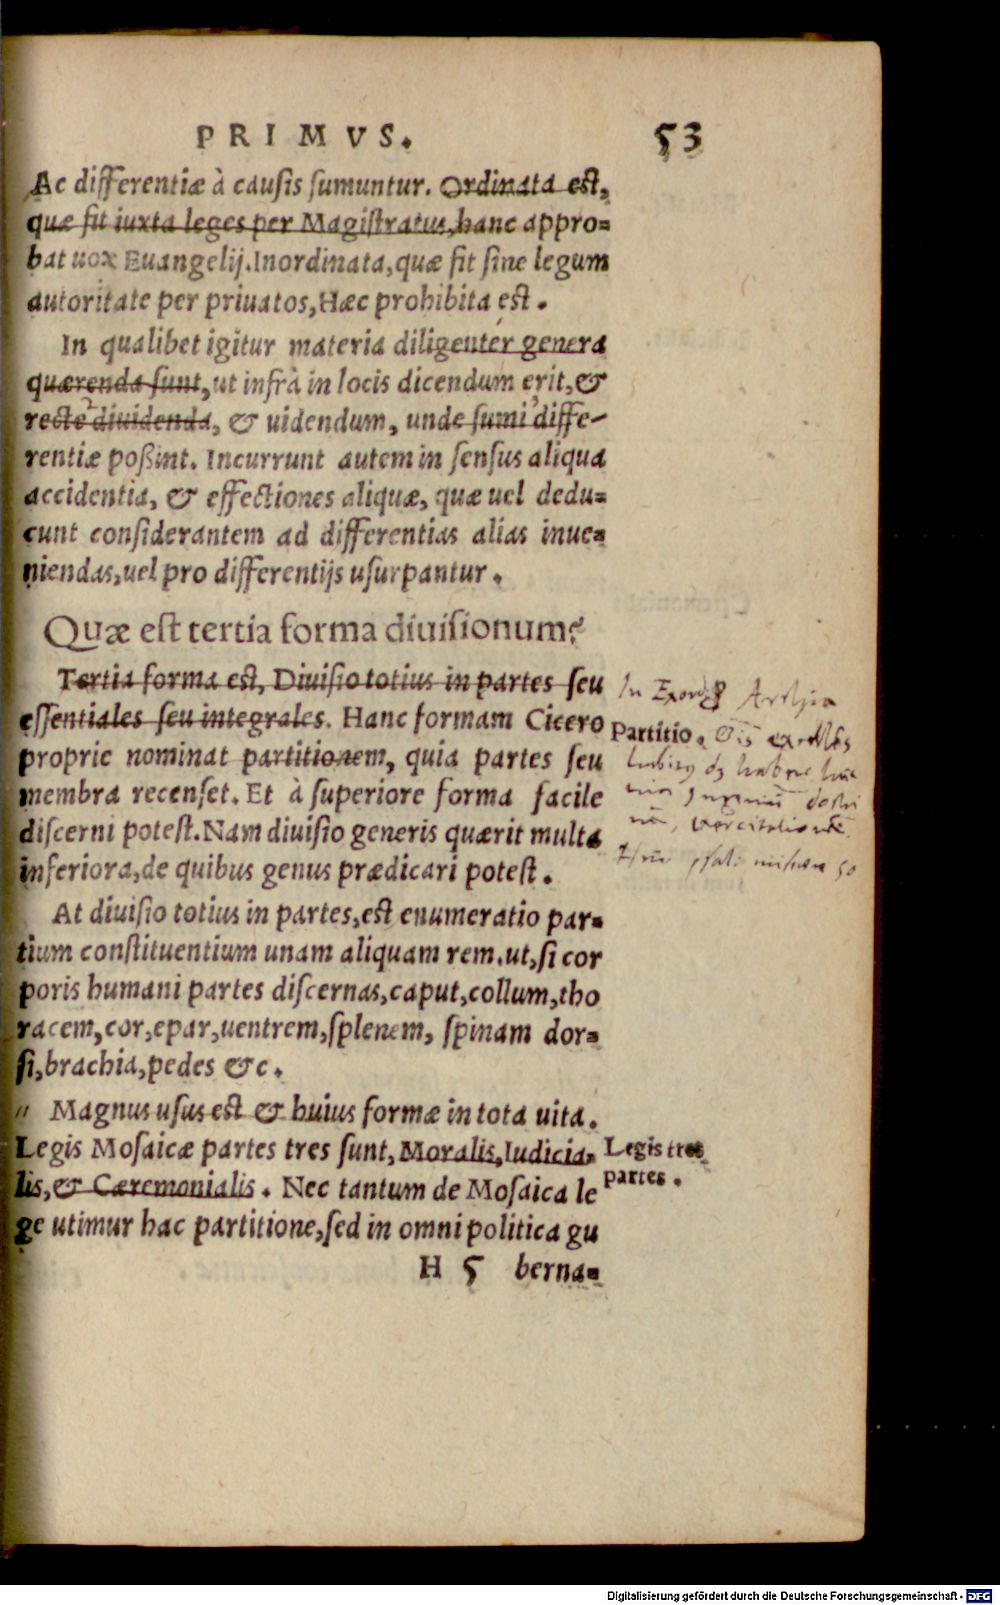 PRIMVS. 53
Ac differentiæ à causis sumuntur. Ordinata est,
quæ fit iuxta leges per Magistratus, hanc appro=
bat uox Euangelij. Inordinata, quæ fit sine legum
autoritate per priuatos, Hæc prohibita est.
In qualibet igitur materia diligenter genera
quærenda sunt, ut infrà in locis dicendum erit, &
recte diuidenda, & uidendum, unde sumi diffe-
rentiæ poßint. Incurrunt autem in sensus aliqua
accidentia, & effectiones aliquæ, quæ uel dedu=
cunt considerantem ad differentias alias inue=
niendas, uel pro differentijs usurpantur.
Quæ est tertia forma diuisionum?
Tertia forma est, Diuisio totius in partes seu
essentiales seu integrales. Hanc formam Cicero
Partitio.
proprie nominat partitionem, quia partes seu
membra recenset. Et à superiore forma facile
discerni potest. Nam diuisio generis quærit multa
inferiora, de quibus genus prædicari potest.
At diuisio totius in partes, est enumeratio par=
tium constituentium unam aliquam rem. ut, si cor
poris humani partes discernas, caput, collum, tho
racem, cor, epar, uentrem, splenem, spinam dor=
si, brachia, pedes &c.
" Magnus usus est & huius formæ in tota uita.
Legis Mosaicæ partes tres sunt, Moralis, Iudicia=
Legis tres
lis, & Cæremonialis. Nec tantum de Mosaica le
partes.
ge utimur hac partitione, sed in omni politica gu
H 5 berna=
Digitalisierung gefördert durch die Deutsche Forschungsgemeinschaft - DFG